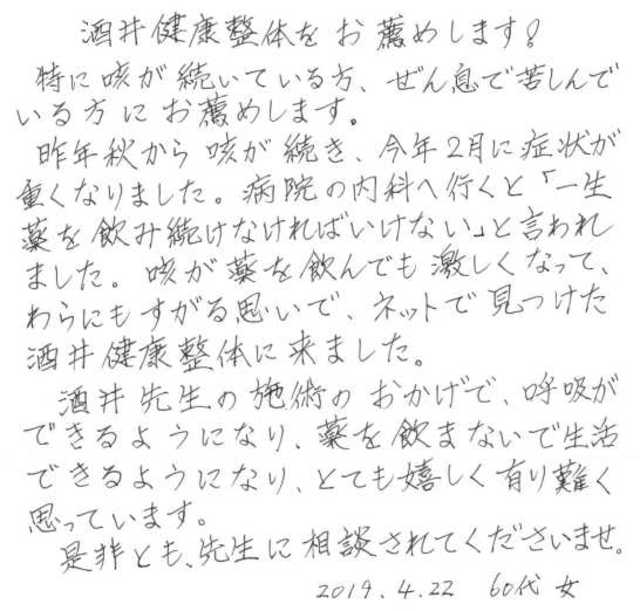 酒井健康整体をお薦めします!
特に咳が続いている方、ぜん息で苦しんで
いる方にお薦めします。
昨年秋から咳が続き、今年2月に症状が
重くなりました。病院の内科へ行くと「一生
薬を飲み続けなければいけない」と言われ
ました。咳が薬を飲んでも激しくなって、
わらにもすがる思いで、ネットで見つけた
酒井健康整体に来ました。
酒井先生の施術のおかげで、呼吸が
できるようになり、薬を飲まないで生活
できるようになり、とても嬉しく有り難く
思っています。
是非とも、先生に相談されてくださいませ。
2019.4.22 60代女